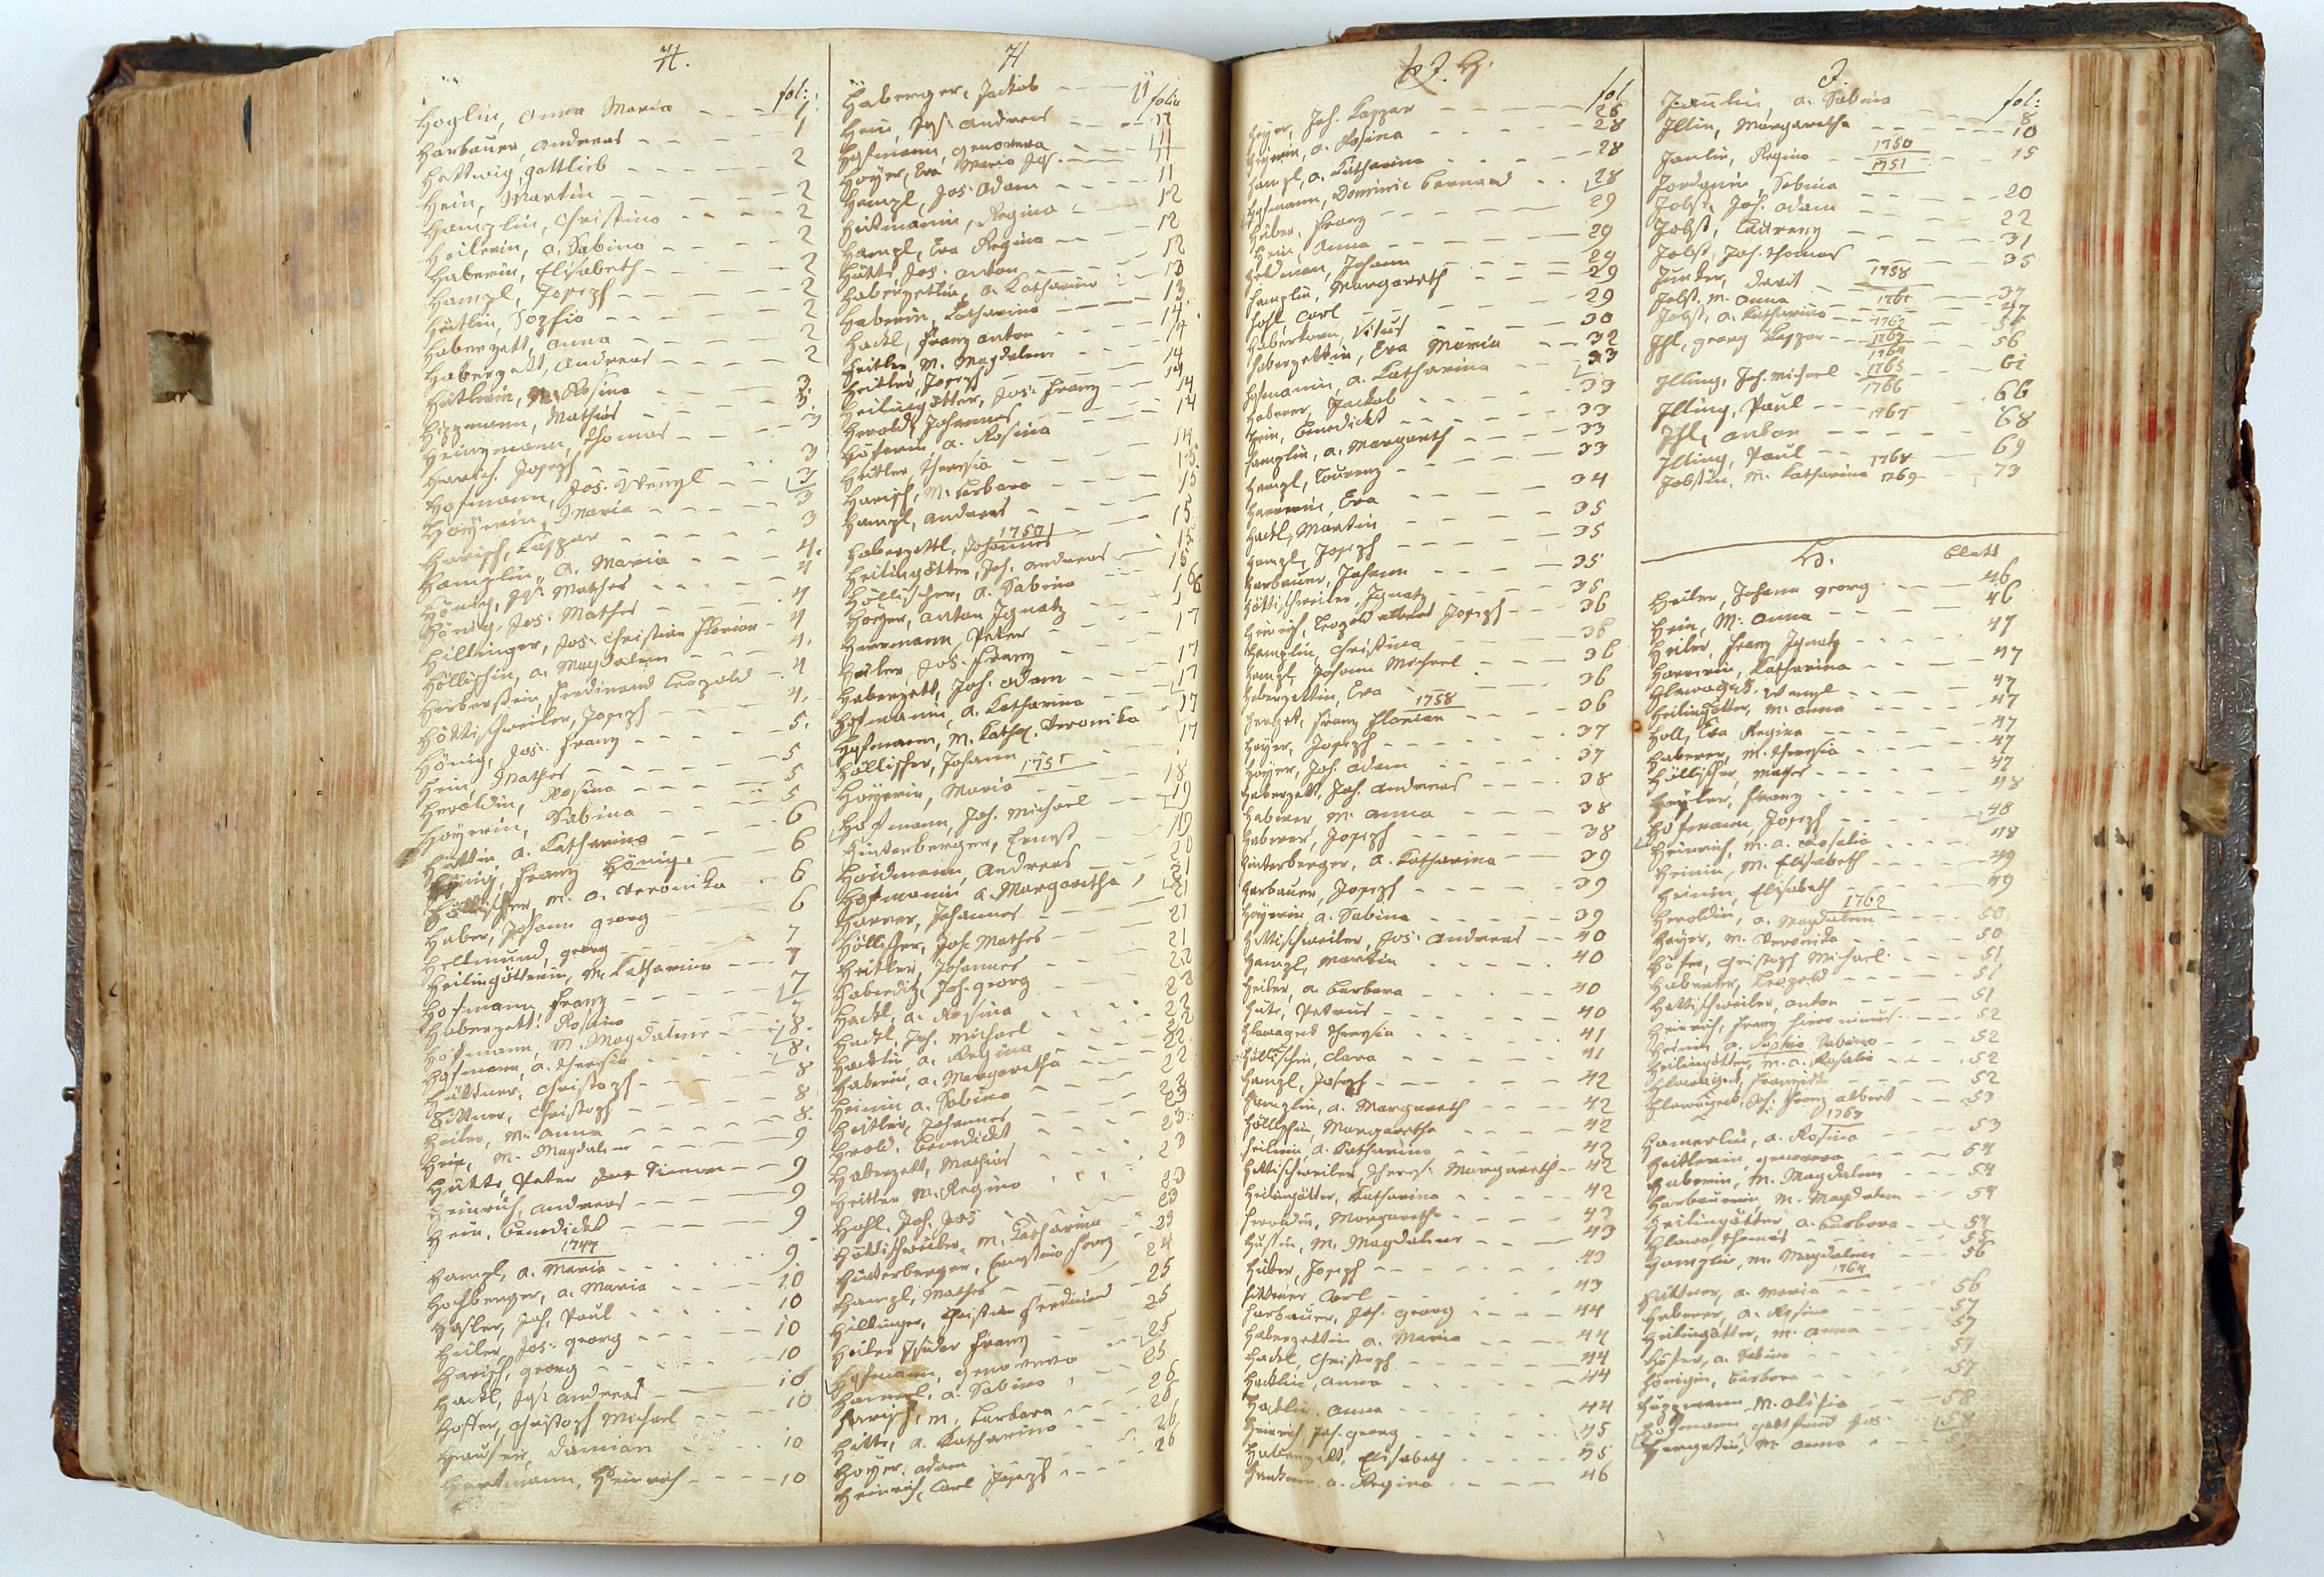 H.
fol:
Hoglin, Anna Maria 1
Harbauer, Andreas 1
Hettwig, Gottlieb 2
Hein, Martin 2
Hamplin, Christina 2
Heilerin, A. Sabina 2
Haberin, Elisabeth 2
Hampl, Joseph 2
Hüttlin, Sophia 2
Haberzett, Anna 2
Haberzett, Andreas 2
Rosina 3.
Mathias 3.
Heinzmann, Thomas 3
Harisch, Joseph 3
Hofmann, Jos: Wenzl 3
Hoÿerin, Maria 3
Harisch, Caspar 3
Hamplin, A. Maria 4.
Hönig, Jos: Mathes 4
Hönig, Jos: Mathes 4
Hillinger, Jos: Christian Florian 4
Höllischin, A. Magdalena 4.
Haberstein, Ferdinand Leopold 4
Höttischweiler, Joseph 4.
Hönig, Jos: Franz 5.
Hein, Mathes 5
Heroldin, Rosina 5
Hoÿerin, Sabina 5
Hüttin, A. Catharina 6
Hönig, Franz Hönig 6
Höllischer, M. A. Veronika 6
Haber, Johann Georg 6
Hellmund, Georg 7
Heilingötterin, M. Catharina 7
Hofmann, Franz 7
Haberzett, Rosina 7
Hofmann, M. Magdalena 8.
Hofmann, A. Theresia 8.
Hüttner, Christoph 8
Hüttner, Christoph 8
Heiler, M. Anna 8.
Hein, M. Magdalena 9
Hütt, Peter Simon 9
Heinrich, Andreas 9
Hein, Benedickt 9
1747
Hampl, A. Maria 9.
Hochberger, A. Maria 10
Hasler, Joh. Paul 10
Heiler, Jos: Georg 10
Harisch, Georg 10
Hackl, Jos: Andreas 10
Höffer, Christoph Michael 10
Hauser, Damian 10
Hartmann, Heinrich 10
H
Haberger, Jackob 11
folio
Hein, Jos: Andreas 11
Hofmann, Genoveva 11
Hoÿer, Eva Maria Jos. 11
Hampl, Jos: Adam 11
Hütmannin, Regina 12
Hampl, Eva Regina 12
Hütt, Jos: Anton 12
Haberzettlin, A. Catharina 13
Haberin, Catharina 13
Hackl, Franz Anton 14
Heitler, M. Magdalena 14
Heitler, Joseph 14
Heilingötter, Jos: Franz 14
Herold, Johannes 14
Höferin, A. Rosina 14
Heitler, Theresia 14
Harisch, M. Barbara 15
Hampl, Andreas 15
1750
Haberzettl, Johannes 15
Heilingötter, Joh. Andreas 15
Höllischer, A. Sabina 16
Hoÿer, Anton Ignatz 16
Herrmann, Peter 17
Heiler, Jos: Franz 17
Haberzett, Joh. Adam 17
Hofmannin, A. Catharina 17
Hofmann, M. Cath. Veronika 17
Höllischer, Johann
1751
Hoÿerin, Maria 18
Hofmann, Joh. Michael 19
Hinterberger, Ernst 19
Andreas 20
Hofmannin, A. Margaretha 21
Harrer, Johannes 21
Höllischer, Joh. Mathes 21
Heitler, Johannes 21
Haberditz, Joh. Georg 22
Hackl, A. Rosina 22
Hackl, Joh. Michael 22
Hacklin, A. Regina 22
Haberin, A. Margaretha 22
Heinin, A. Sabina 23
Heitler, Johannes 23
Herold, Benedickt 23
Haberzett, Mathias 23
Heitler, M. Regina 23
Hohl, Joh. Jos 23
Höttischweiler, M. Catharina 23
Hinterberger, Franz 24
Hampl, Mathes 25
Hillinger, Christian Ferdinand 25
Heiler, Isidor Franz 25
Hofmann, Genoveva 25
Hampl, A. Sabina 26
Harisch, M. Barbara 26
Hütt, A. Catharina 26
Hoÿer, Adam 26
Heinrich, Carl Joseph
H.
fol
Hoÿer, Joh. Caspar 26
Hoÿerin, A. Rosina 28
Hampl, A. Catharina 28
Hofmann, Dominic Bernard 28
Huber, Franz 29
Hein, Anna 29
Johann 29
Hamplin, Margareth 29
Hohl, Carl 29
Haberkorn, Vitus 30
Haberzettin, Eva Maria 32
Hofmannin, A. Catharina 33
Haberer, Jackob 33
Hein, Benedickt 33
Hamplin, A. Margareth 33
Hampl, Lorenz 33
Harrerin, Eva 34
Hackl, Martin 35
Hampl, Joseph 35
Harbauer, Johann 35
Höttischweiler, Ignatz 35
Heinrich, Leopold Joseph 36
Hamplin, Christina 36
Hampl, Johann Michael 36
Haberzettin, Eva 36
1758
Franz Florian 36
Hoÿer, Joseph 37
Hoÿer, Joh. Adam 37
Haberzett, Joh. Andreas 38
Haberer, M. Anna 38
Haberer, Joseph 38
Hinterberger, A. Catharina 39
Harbauer, Joseph 39
Hoÿerin, A. Sabina 39
Höttischweiler, Jos: Andreas 40
Hampl, Martin 40
Heiler, A. Barbara 40
Hütt, Petrus 40
Hlawazeck, Theresia 41
Höllischin, Clara 41
Hampl, Joseph 42
Hamplin, A. Margareth 42
Höllischin, Margaretha 42
Heilerin, A. Catharina 42
Höttischweiler, Theres: Margareth 42
Heilingötter, Catharina 42
Heroldin, Margaretha 43
M. Magdalena 43
Huber, Joseph 43
Hüttner, Carl 43
Harbauer, Jos: Georg 44
Haberzettin, A. Maria 44
Hackl, Christoph 44
Hacklin, Anna 44
Hacklin, Anna 44
Heinrich, Joh. Georg 45
Haberzett, Elisabeth 45
A. Regina 46
J.
fol:
A. Sabina 8
Illin, Margaretha 10
1750
Regina 15
1751
Jordanin, Sabina
Jobst, Joh. Adam 20
Jobst, Laurenz 22
Jobst, Joh. Thomas 31
Junker, David 35
1758
Jobst, M. Anna 37
1761
Jobst, A. Catharina 47
1762
Ihl, Georg Caspar 56
1763
1764
Illing, Joh. Michael 61
1765
1766
Illing, Paul 66
1767
Ihl, Anton 68
Illing, Paul 69
1768
Jobstin, M. Catharina 1769 73
H.
Blatt
Heiler, Johann Georg 46
Hein, M. Anna 46
Heiler, Franz Ignatz 47
Harrerin, Catharina 47
Hlawazeck, Wenzl 47
Heilingötter, M. Anna 47
Holl, Eva Regina 47
Haberer, M. Theresia 47
Höllischer, Mathes 47
Franz 48
Hofmann, Joseph 48
Heinrich, M. A. Rosalia 48
Heinin, M. Elisabeth 49
Heinin, Elisabeth 49
1762
Heroldin, A. Magdalena 50
Hoÿer, M. Veronika 50
Höfer, Christoph Michael 51
Haberer, Leopold 51
Hattischweiler, Anton 51
Heinrich, Franz 52
Heinin, A. Sabina 52
Heilingötter, M. A. Rosalia 52
Hlawazeck, 52
Hlawazeck, Joh. Franz Albert 53
1763
Hamerlin, A. Rosina 53
Heitlerin, Genoveva 54
Haberin, M. Magdalena 54
Harbauerin, M. Magdalena 54
Heilingötter, A. Barbara 54
Thomas 55
Hamplin, M. Magdalena 56
1764
Hüttner, A. Maria 56
Haberer, A. Rosina 57
Heilingötter, M. Anna 57
Höfer, A. Sabina 57
Hönigin, Barbara 57
M. Aloisia 58
Hofmann, Gottfried Jos: 58
M. Anna